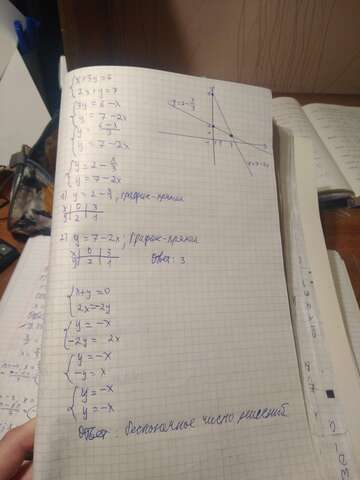 x+3y=6
2x+y=7
3y=6-x
y=7-2x
y=6-x/3
y=7-2x
y=2-x/3
y=7-2x
1) y=2-x/3, график-прямая
x|0|3
y|2|1
2) y=7-2x, График-прямая
x|0|3
y|2|1
Ответ: 3
y=2-x/3
x+y=0
2x=-2y
y=-x
-2y=2x
y=-x
-y=x
y=-x
y=-x
Ответ: бесконечное число решений